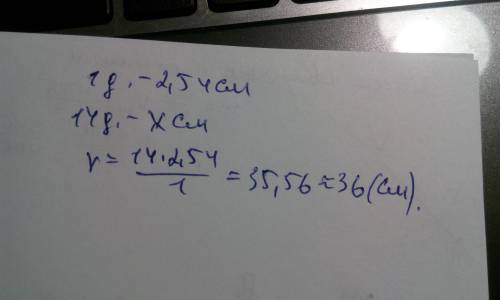 1g. - 2,54 см
14g. - x см
x = 14·2,54 / 1 = 35,56 ≈ 36 (см).